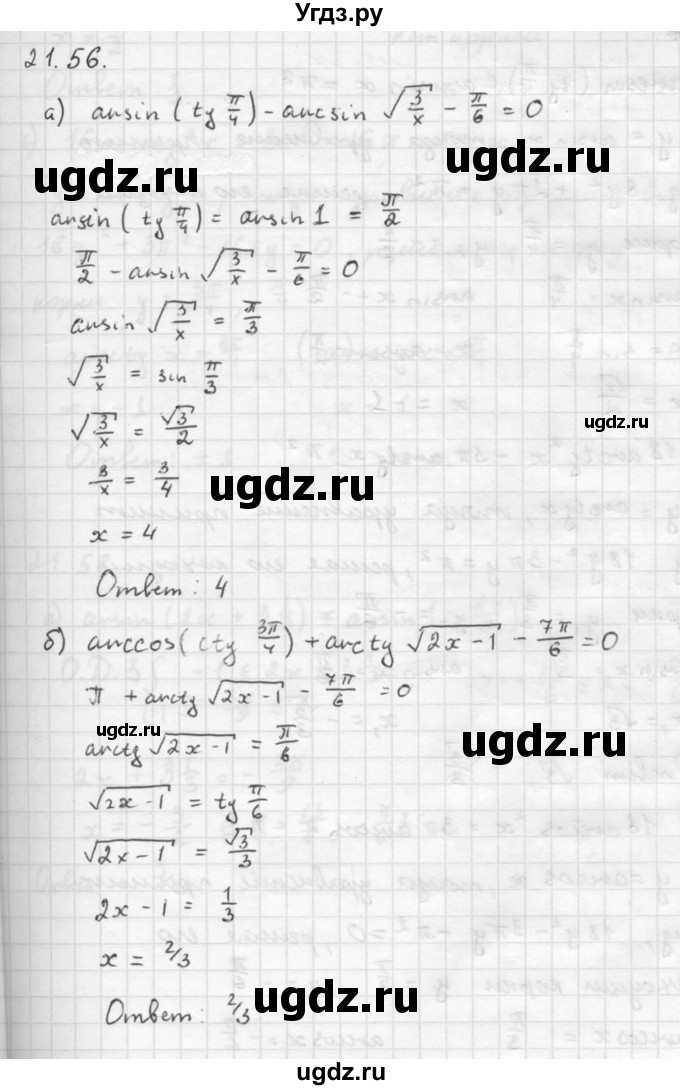 Угдз.ру
21.56.
а) arcsin (tg π/4) - arcsin √(3/x) - π/6 = 0
ugdz.ru ugdz.ru
arcsin (tg π/4) = arcsin 1 = π/2
π/2 - arcsin √(3/x) - π/6 = 0
arcsin √(3/x) = π/3
√(3/x) = sin π/3
√(3/x) = √3/2
ugdz.ru
3/x = 3/4
ugdz.ru
x = 4
Ответ: 4
б) arccos(ctg 3π/4) + arctg √(2x-1) - 7π/6 = 0
π + arctg √(2x-1) - 7π/6 = 0
ugdz.ru ugdz.ru
arctg √(2x-1) = π/6
√(2x-1) = tg π/6
√(2x-1) = √3/3
2x-1 = 1/3
x = 2/3
Ответ: 2/3
ugdz.ru ugdz.ru